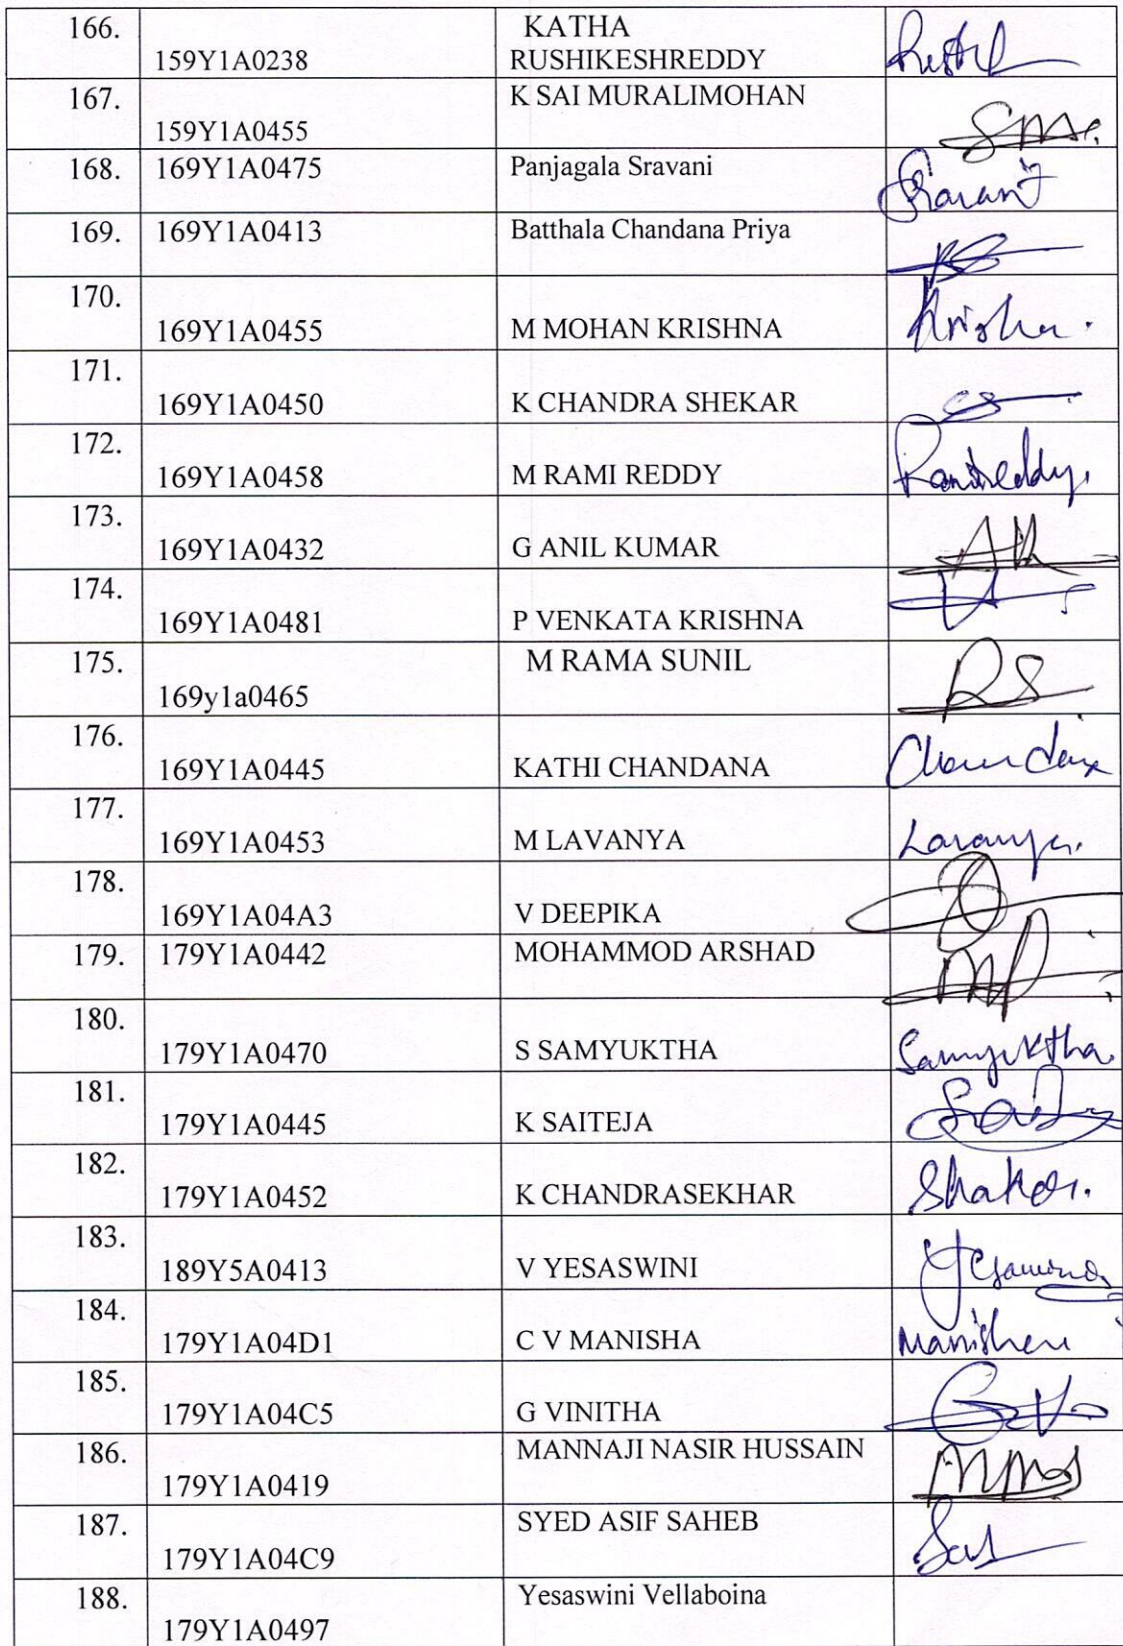 166. 159Y1A0238 KATHA RUSHIKESHREDDY
167. 159Y1A0455 K SAI MURALIMOHAN
168. 169Y1A0475 Panjagala Sravani
169. 169Y1A0413 Batthala Chandana Priya
170. 169Y1A0455 M MOHAN KRISHNA Krisha.
171. 169Y1A0450 K CHANDRA SHEKAR CS
172. 169Y1A0458 M RAMI REDDY Ramireddy.
173. 169Y1A0432 G ANIL KUMAR
174. 169Y1A0481 P VENKATA KRISHNA
175. 169y1a0465 M RAMA SUNIL RS
176. 169Y1A0445 KATHI CHANDANA
177. 169Y1A0453 M LAVANYA Lavanya.
178. 169Y1A04A3 V DEEPIKA
179. 179Y1A0442 MOHAMMOD ARSHAD
180. 179Y1A0470 S SAMYUKTHA Samyuktha.
181. 179Y1A0445 K SAITEJA
182. 179Y1A0452 K CHANDRASEKHAR
183. 189Y5A0413 V YESASWINI
184. 179Y1A04D1 C V MANISHA
185. 179Y1A04C5 G VINITHA
186. 179Y1A0419 MANNAJI NASIR HUSSAIN
187. 179Y1A04C9 SYED ASIF SAHEB
188. 179Y1A0497 Yesaswini Vellaboina